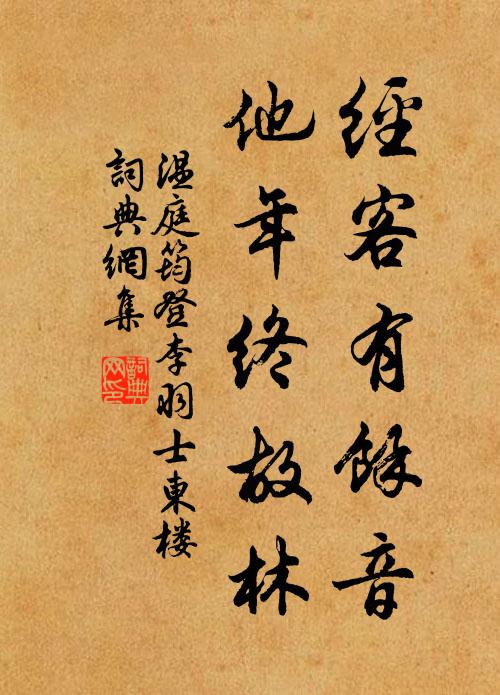 經客有餘音
他年終故林
温庭筠登李羽士東楼
詞典網集
詞典
网印